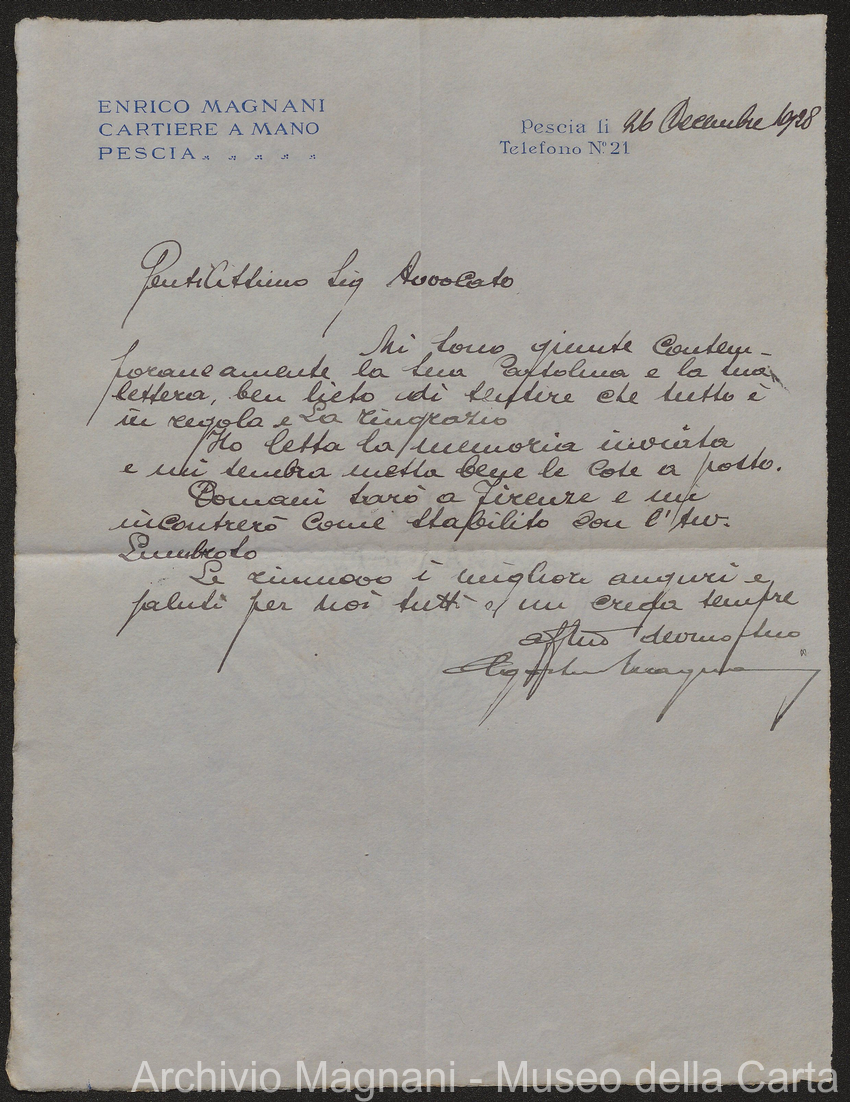 ENRICO MAGNANI
CARTIERE A MANO
PESCIA
Pescia li 26 Decembre 1928
Telefono Nº 21
Gentilissimo Sig Avvocato
Mi sono giunte contem-
poraneamente la sua Cartolina e la sua
lettera, ben lieto di sentire che tutto è
in regola e La ringrazio
Ho letta la memoria inviata
e mi sembra metta bene le cose a posto.
Domani sarò a Firenze e mi
incontrerò come stabilito con l'Avv.
Lumbroso
Le rinnovo i migliori auguri e
saluti per noi tutti e mi creda sempre
affmo devmo suo
Magnani
Archivio Magnani - Museo della Carta